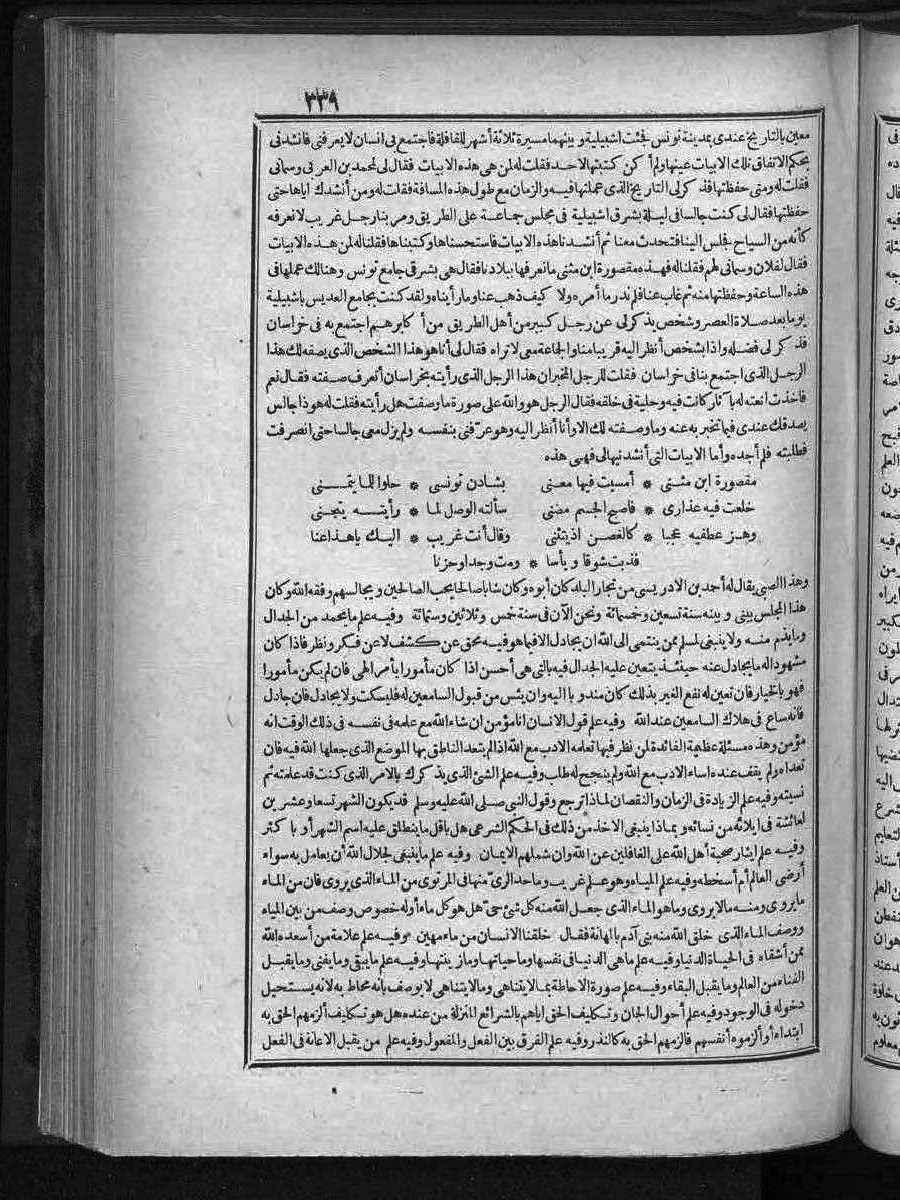 ٣٣٩
معين بالتاريخ عندى بمدينة تونس فجئت اشبيلية وبينهما مسيرة ثلاثة أشهر للقافلة فاجتمع بى انسان لا يعرفنى فانشدنى
بحكم الاتفاق تلك الابيات عينها ولم أكن كتبتها لاحد فقلت له لمن هى هذه الابيات فقال لى لمحمد بن العربى وسمانى
فقلت له ومتى حفظتها فذكر لى التاريخ الذى عملتها فيه والزمان مع طول هذه المسافة فقلت له ومن أنشدك اياها حتى
حفظتها فقال لى كنت جالسا فى ليلة بشرق اشبيلية فى مجلس جماعة على الطريق ومر بنا رجل غريب لا نعرفه
كأنه من السياح فجلس الينا فتحدث معنا ثم أنشدنا هذه الابيات فاستحسناها وكتبناها فقلنا له لمن هذه الابيات
فقال لفلان وسمانى لهم فقلنا له فهذه مقصورة ابن مثنى ما نعرفها ببلادنا فقال هى بشرقى جامع تونس وهنالك عملها فى
هذه الساعة وحفظتها منه ثم غاب عنا فلم ندر ما أمره ولا كيف ذهب عنا وما رأيناه ولقد كنت بجامع العديس باشبيلية
يوما بعد صلاة العصر وشخص يذكر لى عن رجل كبير من أهل الطريق من أكابرهم اجتمع به فى خراسان
فذكر لى فضله واذا بشخص أنظر اليه قريبا منا والجماعة معى لا تراه فقال لى أنا هو هذا الشخص الذى يصفه لك هذا
الرجل الذى اجتمع بنا فى خراسان فقلت للرجل المخبر ان هذا الرجل الذى رأيته بخراسان أتعرف صفته فقال نعم
فاخذت انعته له بآثار كانت فيه وحلية فى خلقه فقال الرجل هو والله على صورة ما وصفت هل رأيته فقلت له هو ذا جالس
يصدقك عندى فيما تخبر به عنه وما وصفته لك الا وأنا أنظر اليه وهو عرفنى بنفسه ولم يزل معى جالسا حتى انصرفت
فطلبته فلم أجده وأما الابيات التى أنشدنيها لى فهى هذه
مقصورة ابن مثنى * أمسيت فيها معنى بشادن تونسى * حلو اللما يتمنى
خلعت فيه عذارى * فاصبح الجسم مضنى سألته الوصل لما * رأيته يتجنى
وهز عطفيه عجبا * كالغصن اذ يتثنى وقال أنت غريب * اليك يا هذا عنا
فذبت شوقا ويأسا * ومت وجدا وحزنا
وهذا الصبى يقال له أحمد بن الادريسى من تجار البلد كان أبوه وكان شابا صالحا يحب الصالحين ويجالسهم وفقه الله وكان
هذا المجلس بينى وبينه سنة تسعين وخمسمائة ونحن الآن فى سنة خمس وثلاثين وستمائة وفيه علم ما يحمد من الجدال
وما يذم منه ولا ينبغى لمسلم ممن ينتمى الى الله ان يجادل الا فيما هو فيه محق عن كشف لا عن فكر ونظر فاذا كان
مشهودا له ما يجادل عنه حينئذ يتعين عليه الجدال فيه بالتى هى أحسن اذا كان مأمورا بأمر الهى فان لم يكن مأمورا
فهو بالخيار فان تعين له نفع الغير بذلك كان مندوبا اليه وان يئس من قبول السامعين له فليسكت ولا يجادل فان جادل
فانه ساع فى هلاك السامعين عند الله وفيه علم قول الانسان انا مؤمن ان شاء الله مع علمه فى نفسه فى ذلك الوقت انه
مؤمن وهذه مسئلة عظيمة الفائدة لمن نظر فيها تعلمه الادب مع الله اذا لم يتعد الناطق بها الموضع الذى جعلها الله فيه فان
تعداه ولم يقف عنده أساء الادب مع الله ولم ينجح له طلب وفيه علم الشئ الذى يذكرك بالامر الذى كنت قد علمته ثم
نسيته وفيه علم الزيادة فى الزمان والنقصان لماذا ترجع وقول النبى صلى الله عليه وسلم قد يكون الشهر تسعا وعشرين
لعائشة فى ايلائه من نسائه وبماذا ينبغى الاخذ من ذلك فى الحكم الشرعى هل باقل ما ينطلق عليه اسم الشهر أو باكثر
وفيه علم ايثار صحبة أهل الله على الغافلين عن الله وان شملهم الايمان وفيه علم ما ينبغى لجلال الله أن يعامل به سواء
أرضى العالم أم أسخطه وفيه علم المياه وهو علم غريب وما حد الرى منها فى المرتوى من الماء الذى يروى فان من الماء
ما يروى ومنه ما لا يروى وما هو الماء الذى جعل الله منه كل شئ حى هل هو كل ماء أو له خصوص وصف من بين المياه
ووصف الماء الذى خلق الله منه بنى آدم بالمهانة فقال خلقنا الانسان من ماء مهين وفيه علم علامة من أسعده الله
ممن أشقاه فى الحياة الدنيا وفيه علم ما هى الدنيا فى نفسها وما حياتها وما زينتها وفيه علم ما يبقى وما يفنى وما يقبل
الفناء من العالم وما يقبل البقاء وفيه علم صورة الاحاطة بما لا يتناهى وما لا يتناهى لا يوصف بأنه محاط به لانه يستحيل
دخوله فى الوجود وفيه علم أحوال الجان وتكليف الحق اياهم بالشرائع المنزلة من عنده هل هو تكليف ألزمهم الحق به
ابتداء أو ألزموه أنفسهم فالزمهم الحق به كالنذر وفيه علم الفرق بين الفعل والمفعول وفيه علم من يقبل الاعانة فى الفعل